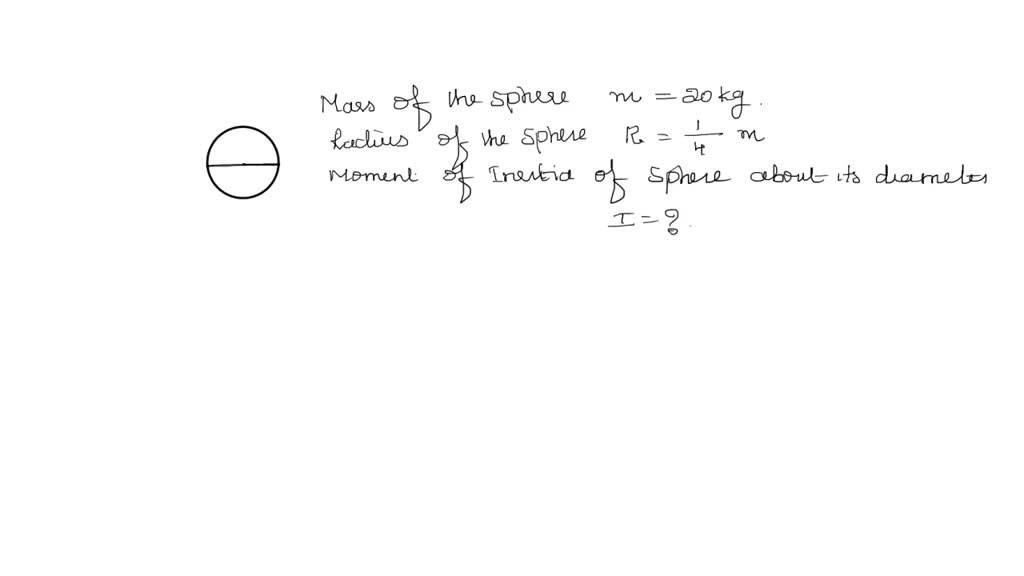 Mass of the sphere m = 20 kg.
Radius of the sphere R = 1/4 m
Moment of Inertia of Sphere about its diameter
I = ?